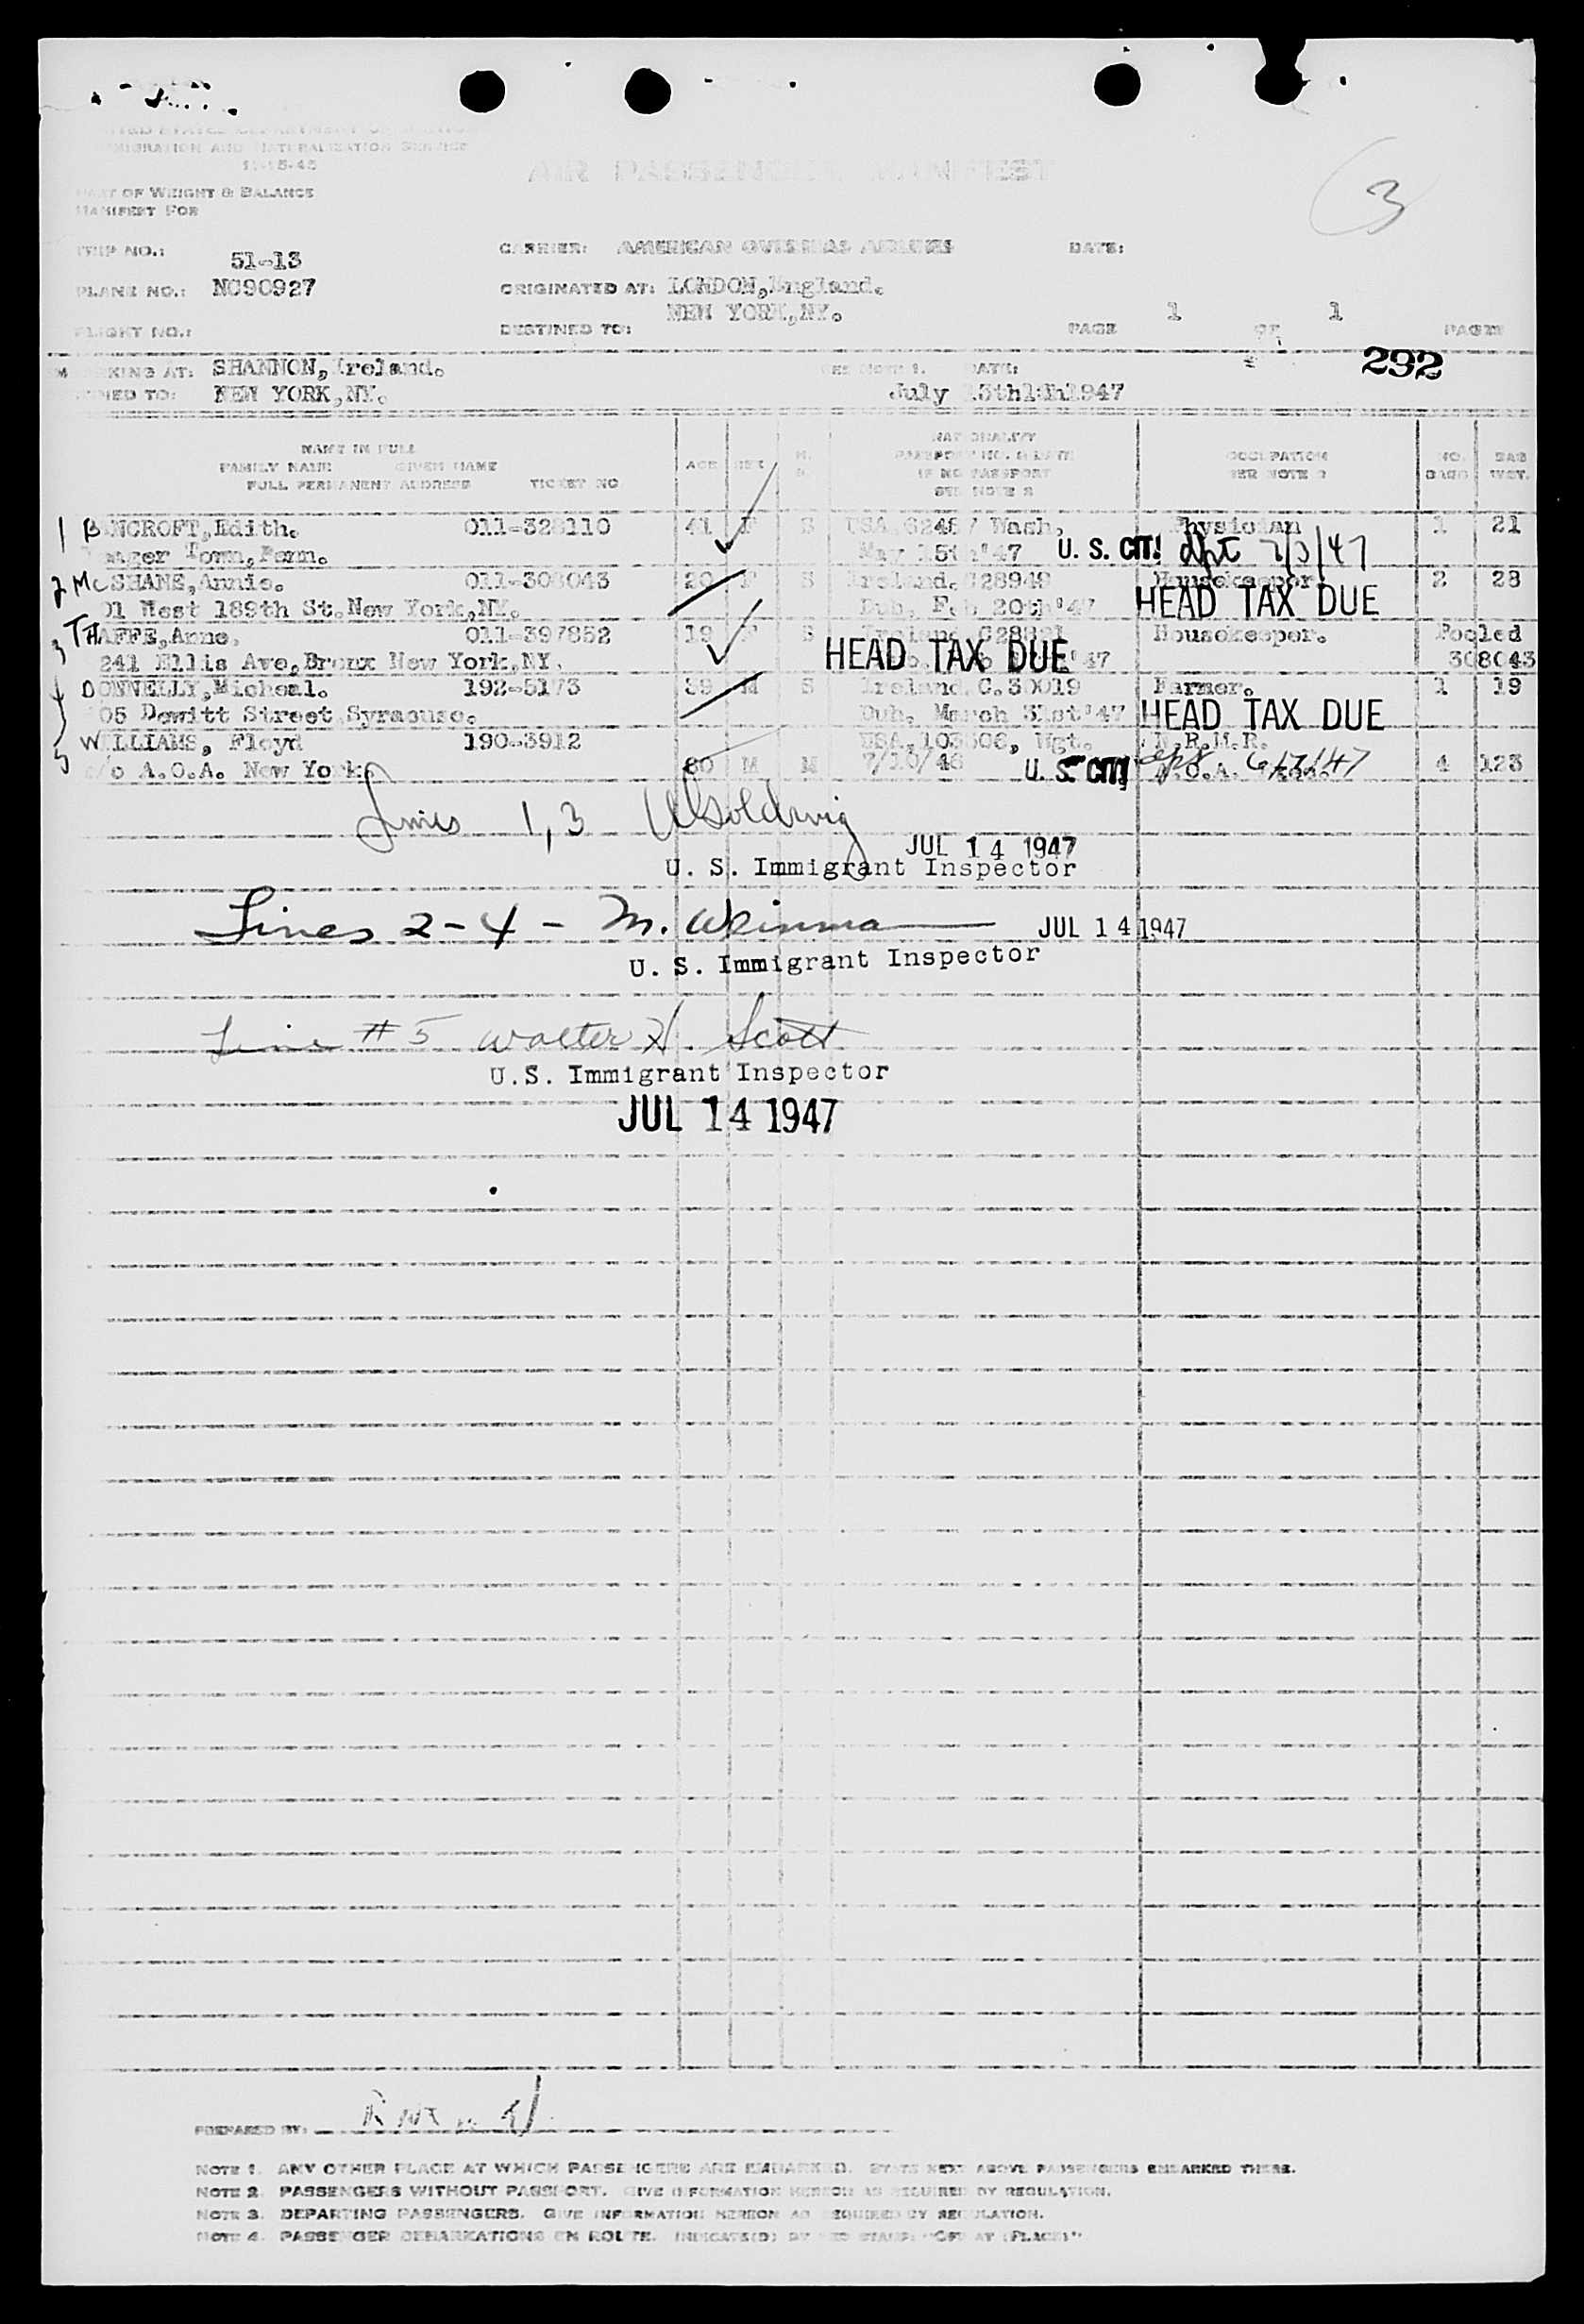 IMMIGRATION AND NATURALIZATION SERVICE
AIR PASSENGER MANIFEST
3
OF WEIGHT & BALANCE
MANIFEST FOR
TRIP NO.: 51-13 CARRIER: AMERICAN OVERSEAS AIRLINES DATE:
PLANE NO.: NC90927 ORIGINATED AT: LONDON,England.
FLIGHT NO.: DESTINED TO: NEW YORK,NY. PAGE 1 OF 1 PAGES
292
KING AT: SHANNON, Ireland. DATE:
NED TO: NEW YORK,NY. July 1947
NAME IN FULL NATIONALITY
FAMILY NAME GIVEN NAME AGE SEX PASSPORT NO. & DATE OCCUPATION NO. BAG
FULL PERMANENT ADDRESS TICKET NO IF NO PASSPORT SEE NOTE 2 BAGG WGT.
1 BANCROFT,Edith. 011-328110 41 F S USA Wash. Physician 1 21
Town,Penn. May 15th '47 U. S. CIT! 7/3/47
2 McSHANE,Annie. 011-308043 20 F S Ireland. C28949 Housekeeper 2 28
01 West 189th St.New York,NY. Dub, Feb 20th '47 HEAD TAX DUE
3 TAAFFE,Anne. 011-397852 19 F S Housekeeper. Pooled
241 Ellis Ave,Bronx New York,NY. HEAD TAX DUE '47 308043
4 DONNELLY,Micheal. 192-5173 39 M S Ireland. C.30019 Farmer. 1 19
05 Dewitt Street Syracuse. Dub. March 31st'47 HEAD TAX DUE
5 WILLIAMS, Floyd 190-3912 USA, Wgt. N.R.M.R.
c/o A.O.A. New York. M M U. S. CIT! A.O.A. 6/7/47 4 123
Lines 1,3
JUL 14 1947
U. S. Immigrant Inspector
Lines 2-4 - M. JUL 14 1947
U. S. Immigrant Inspector
Line #5 Walter H. Scott
U.S. Immigrant Inspector
JUL 14 1947
PREPARED BY:
NOTE 1. ANY OTHER PLACE AT WHICH PASSENGERS ARE EMBARKED. STATE NEXT ABOVE PASSENGERS EMBARKED THERE.
NOTE 2. PASSENGERS WITHOUT PASSPORT. GIVE INFORMATION HEREON AS REQUIRED BY REGULATION.
NOTE 3. DEPARTING PASSENGERS. GIVE INFORMATION HEREON AS REQUIRED BY REGULATION.
NOTE 4. PASSENGER DEBARKATIONS EN ROUTE. INDICATE(D) BY RED STAMP: "OFF AT (PLACE)"